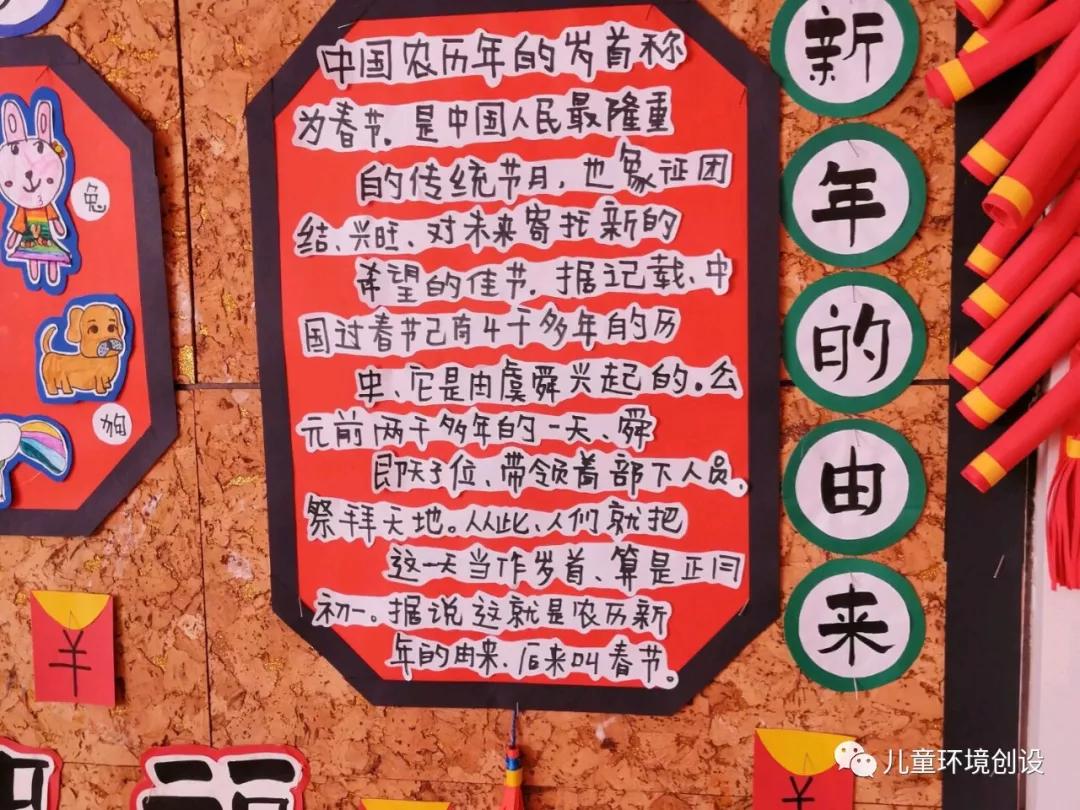 中国农历年的岁首称
为春节。是中国人民最隆重
的传统节日，也象证团
结、兴旺、对未来寄托新的
希望的佳节。据记载、中
国过春节已有4千多年的历
史、它是由虞舜兴起的。公
元前两千多年的一天、舜
即天子位、带领着部下人员。
祭拜天地。从此、人们就把
这一天当作岁首、算是正月
初一。据说这就是农历新
年的由来、后来叫春节。
新
年
的
由
来
兔
狗
羊
福
羊
儿童环境创设